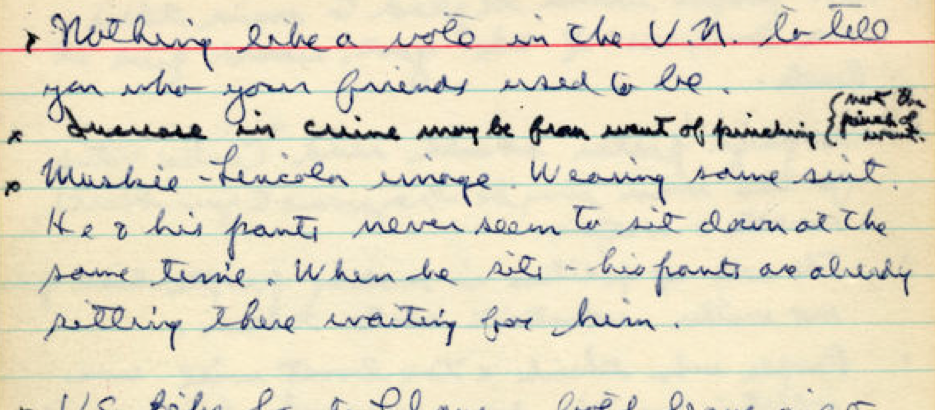 x Nothing like a vote in the U.N. to tell
you who your friends used to be.
x Increase in crime may be from want of pinching { not the
pinch of
want.
x Muskie - Lincoln image. Wearing same suit.
He & his pants never seem to sit down at the
same time. When he sits - his pants are already
sitting there waiting for him.